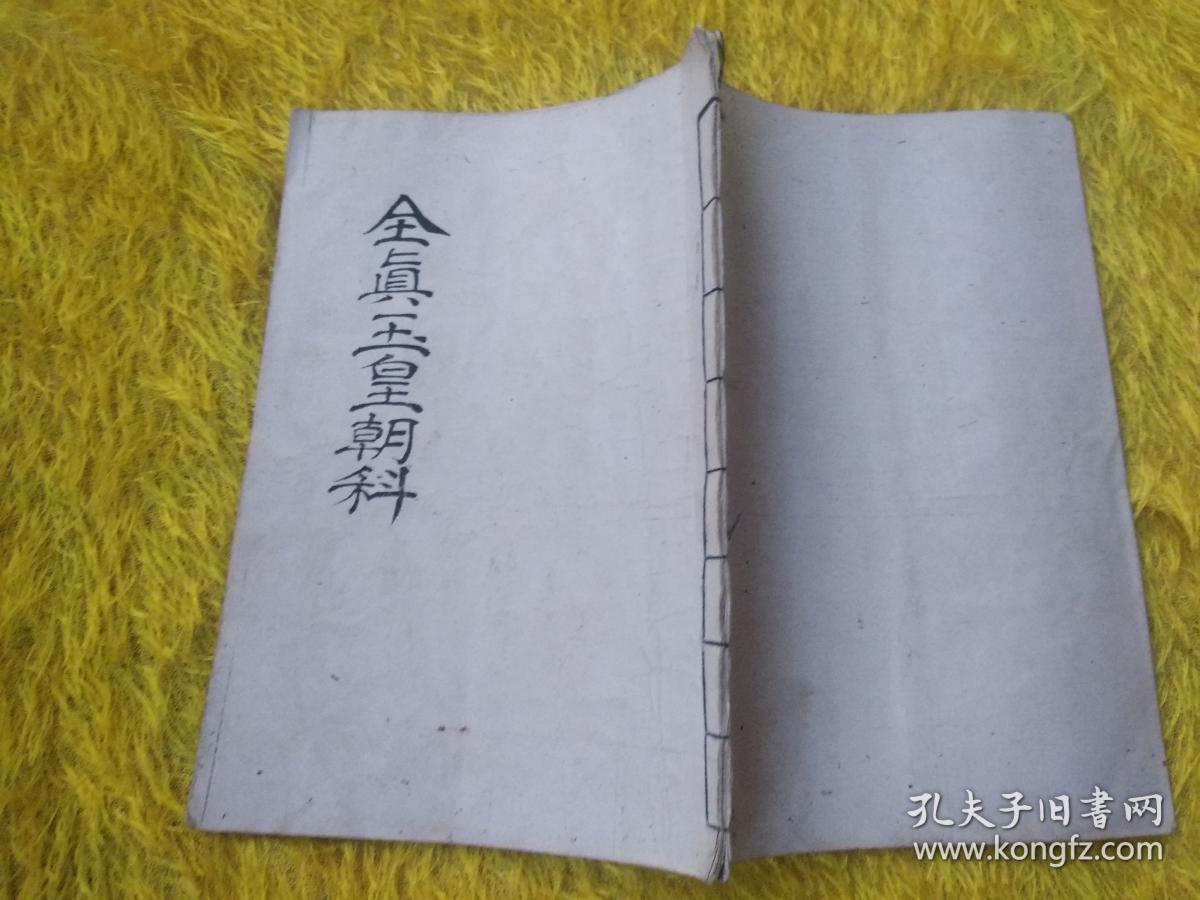 全眞玉皇朝科
孔夫子旧書网
www.kongfz.com